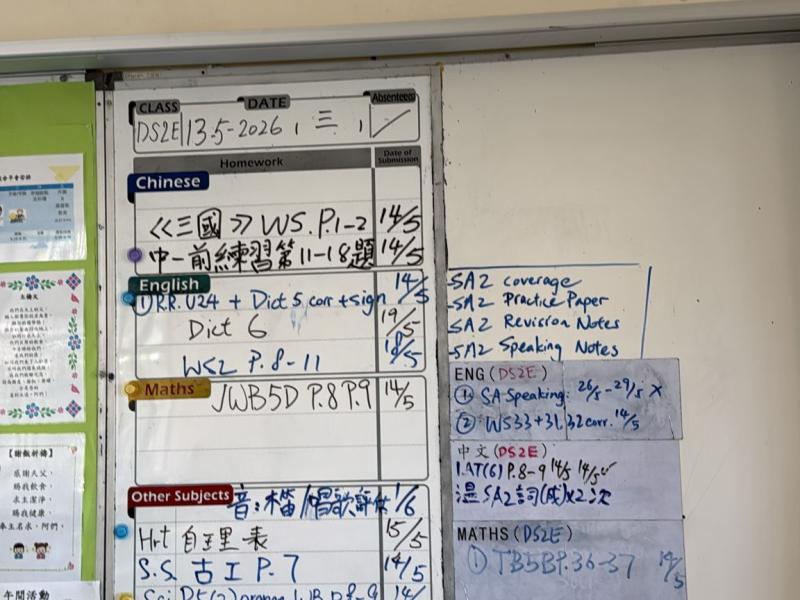 CLASS DATE Absentees
DS2E 13.5-2026, 三,
Homework Date of Submission
Chinese
《三國》WS. P.1-2 14/5
中一前練習第11-18題 14/5
English
① R.R. U24 + Dict 5 corr + sign 14/5
Dict 6 19/5
WS2 P.8-11 18/5
Maths
JWB5D P.8 P.9 14/5
Other Subjects
音: 木笛/唱歌評估 1/6
Hrt 自理表 15/5
S.S. 古工 P.7 14/5
SA2 coverage
SA2 Practice Paper
SA2 Revision Notes
SA2 Speaking Notes
ENG (DS2E)
① SA Speaking: 26/5-29/5 X
② WS33+31,32 corr. 14/5
中文 (DS2E)
1.AT(6) P.8-9 14/5 14/5
溫SA2詞(成)x2次
MATHS (DS2E)
① TB5B P.36-37 14/5
【謝飯祈禱】
感謝天父,
賜我飲食,
求主潔淨,
賜我健康,
奉主名求, 阿們。
主禱文
午間活動